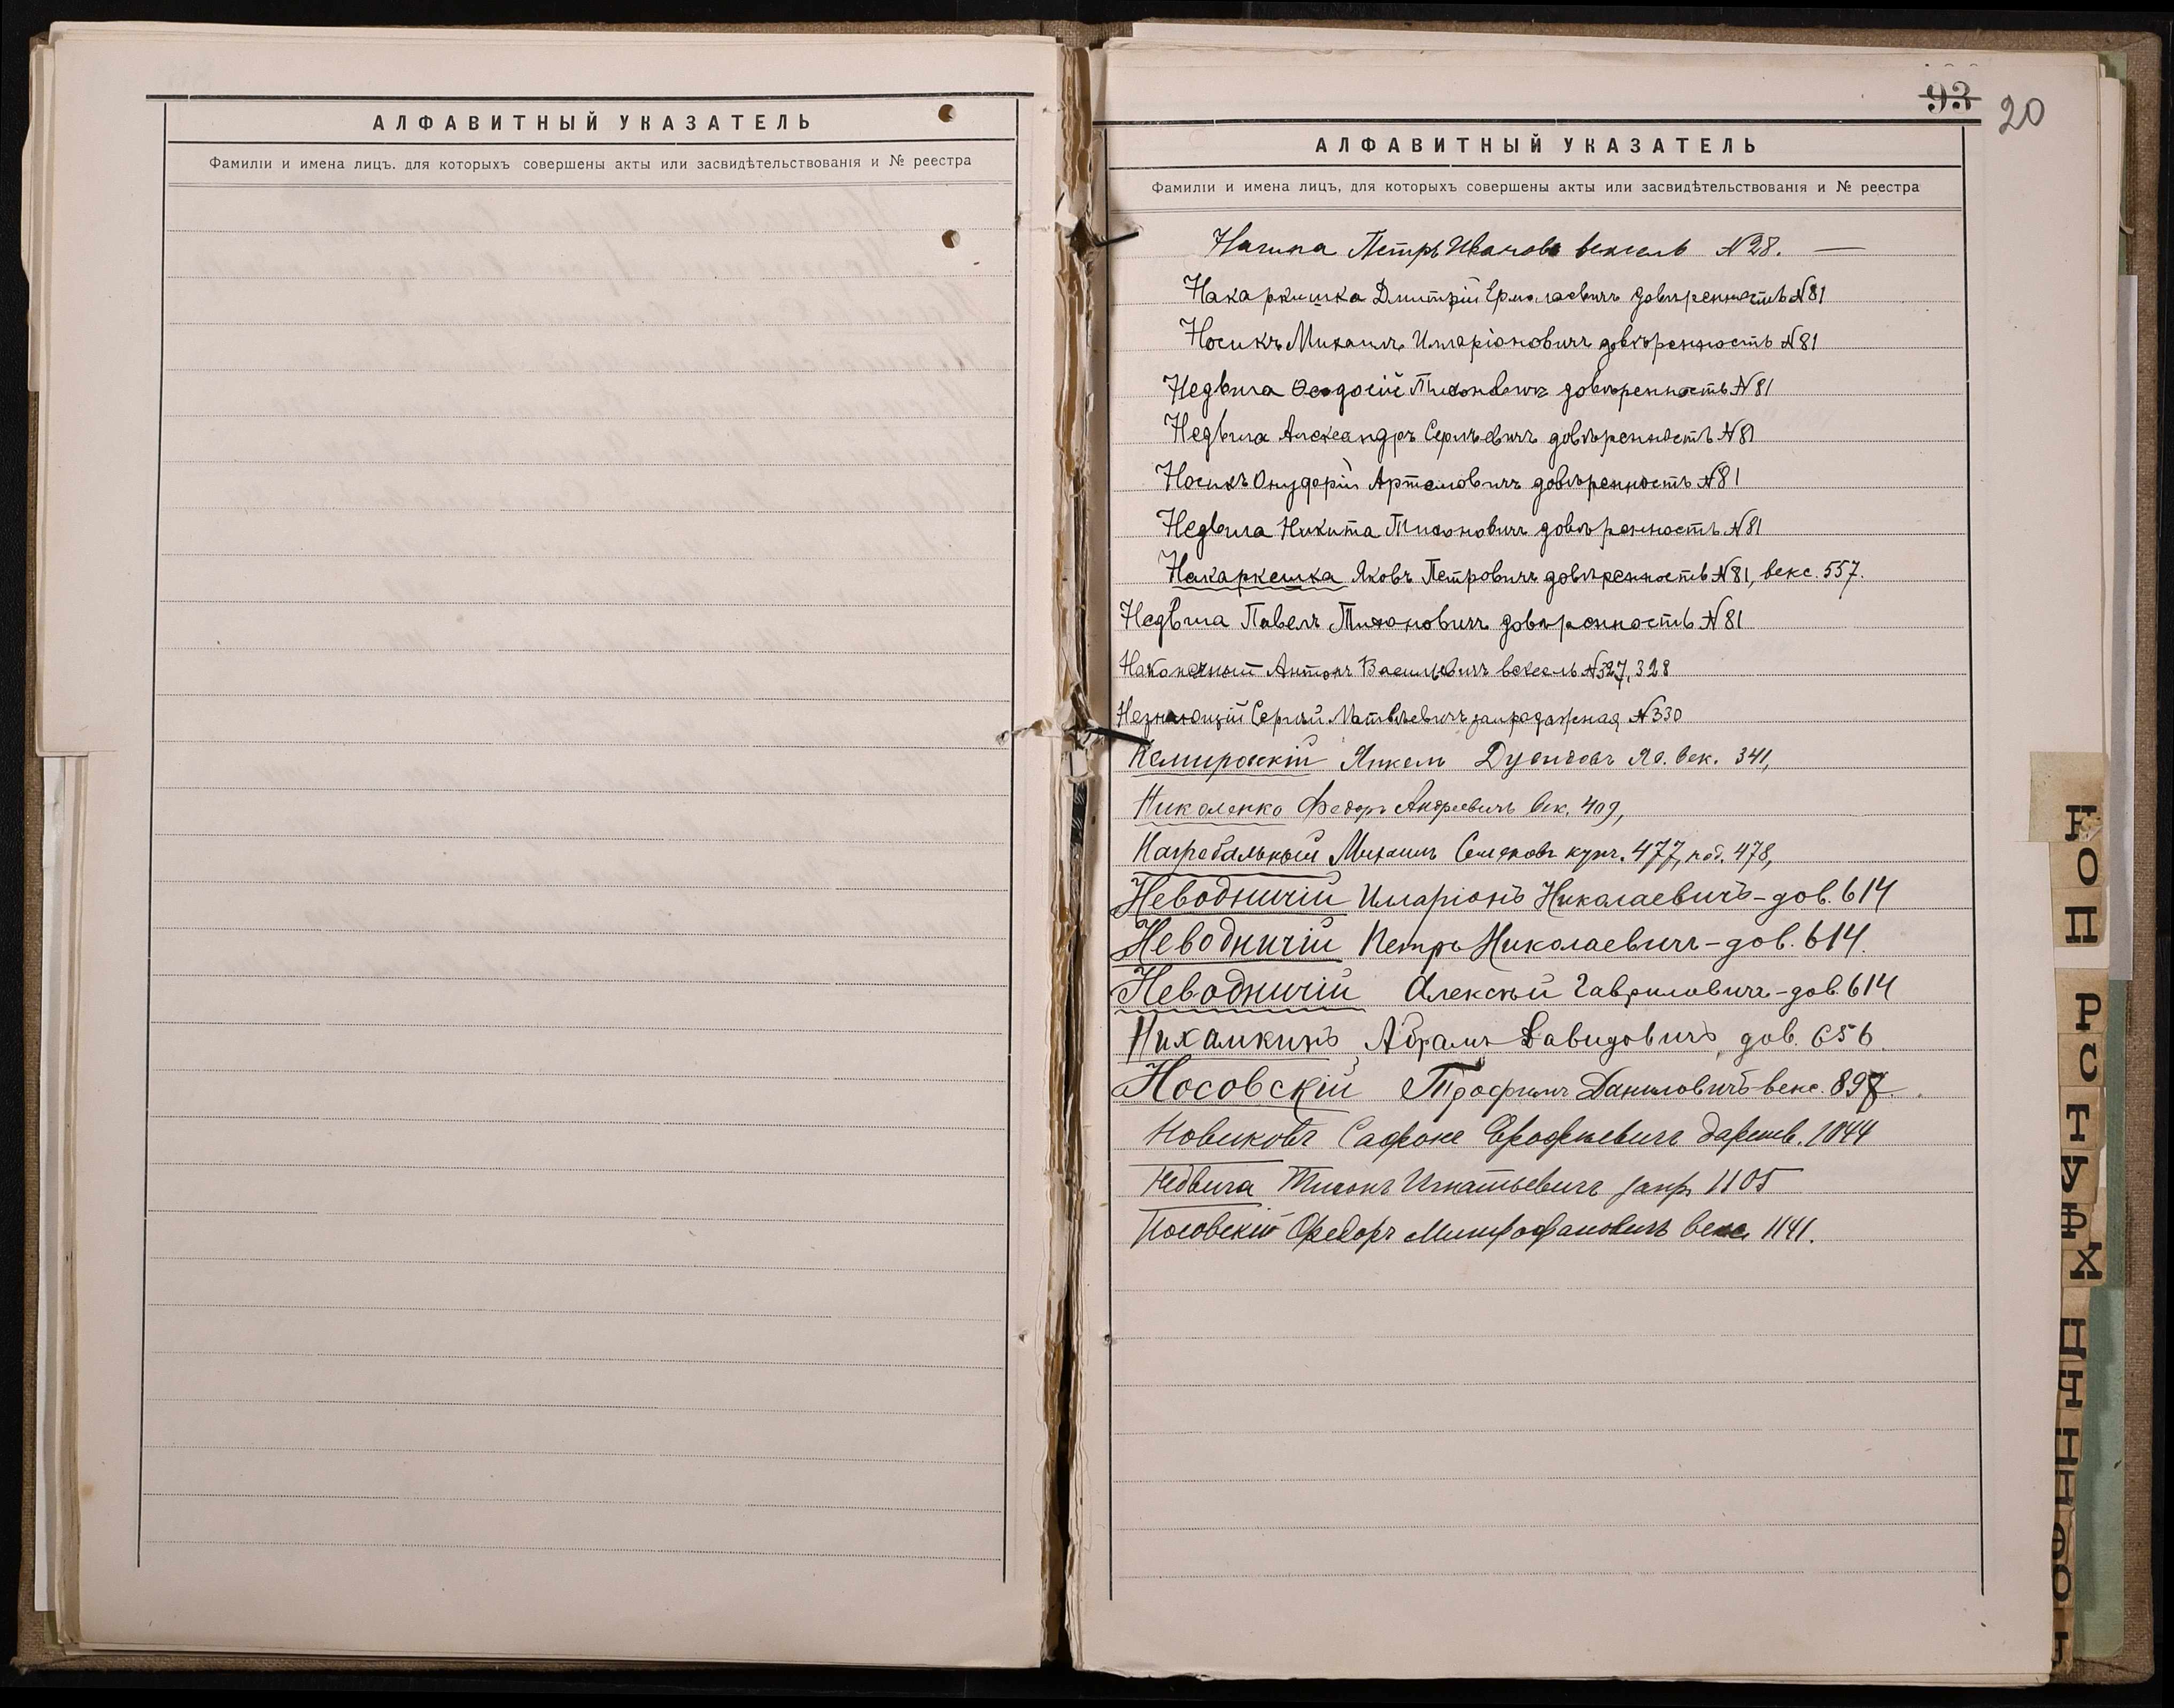 АЛФАВИТНЫЙ УКАЗАТЕЛЬ
Фамиліи и имена лицъ. для которыхъ совершены акты или засвидѣтельствованія и № реестра
93 20
АЛФАВИТНЫЙ УКАЗАТЕЛЬ
Фамиліи и имена лицъ, для которыхъ совершены акты или засвидѣтельствованія и № реестра
Петръ Ивановъ вексель №28. —
Накаркишка Дмитрій Ермолаевичъ довѣренность №81
Носикъ Михаилъ Илларіоновичъ довѣренность №81
Недвига Ѳеодосій Тихоновичъ довѣренность №81
Недвига Александръ Сергѣевичъ довѣренность №81
Носикъ Онуфрій Артемовичъ довѣренность №81
Недвига Никита Тихоновичъ довѣренность №81
Накаркешка Яковъ Петровичъ довѣренность №81, векс. 557.
Недвига Павелъ Тихоновичъ довѣренность №81
Наконечный Антонъ Васильевичъ вексель №327, 328
Незнающій Сергѣй Матвѣевичъ запродажная №330
Немировскій Янкель Дувидовъ век. 341,
Николенко Федоръ Андреевичъ век. 409,
Награбальный Михаилъ Семеновъ купч. 477, 478,
Неводничій Иларіонъ Николаевичъ - дов. 614
Неводничій Петръ Николаевичъ - дов. 614.
Неводничій Алексѣй Гавриловичъ - дов. 614
Нихамкинъ Абрамъ Давидовичъ, дов. 656.
Носовскій Трофимъ Даниловичъ векс. 897.
Новиковъ Сафонъ Ерофѣевичъ дарств. 1044
Недвига Тихонъ Игнатьевичъ запр. 1105
Носовскій Ѳедоръ Митрофановичъ векс. 1141.
О
П
Р
С
Т
У
Ф
Х
Ц
Ч